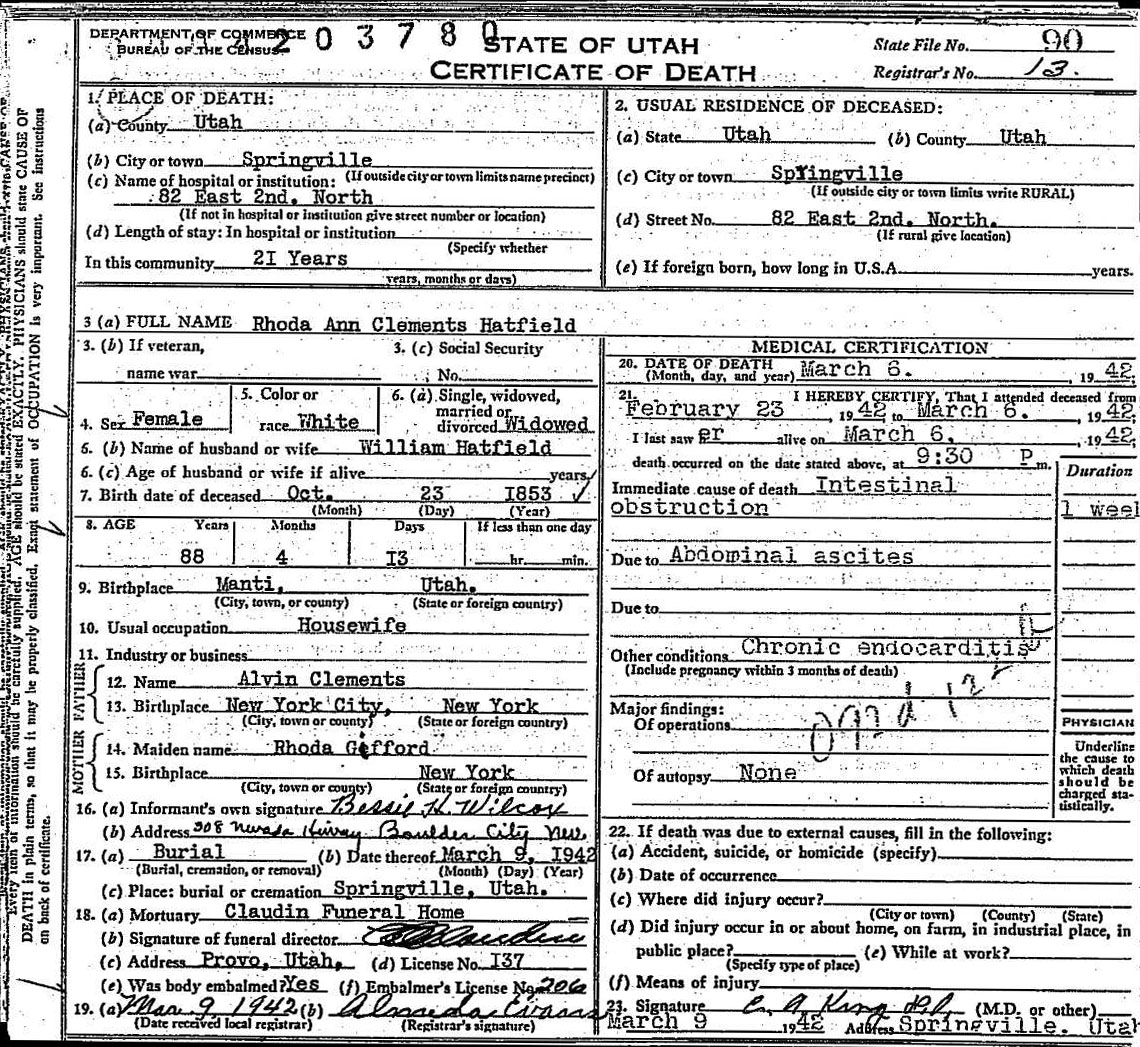 DEPARTMENT OF COMMERCE
BUREAU OF THE CENSUS
203780
STATE OF UTAH
CERTIFICATE OF DEATH
State File No. 90
Registrar's No. 13.
1. PLACE OF DEATH:
(a) County Utah
(b) City or town Springville
(If outside city or town limits name precinct)
(c) Name of hospital or institution:
82 East 2nd. North
(If not in hospital or institution give street number or location)
(d) Length of stay: In hospital or institution
(Specify whether
In this community 2I Years
years, months or days)
2. USUAL RESIDENCE OF DECEASED:
(a) State Utah (b) County Utah
(c) City or town Springville
(If outside city or town limits write RURAL)
(d) Street No. 82 East 2nd. North.
(If rural give location)
(e) If foreign born, how long in U.S.A. years.
3 (a) FULL NAME Rhoda Ann Clements Hatfield
3. (b) If veteran,
name war
3. (c) Social Security
No.
4. Sex Female
5. Color or
race White
6. (a) Single, widowed,
married or
divorced Widowed
6. (b) Name of husband or wife William Hatfield
6. (c) Age of husband or wife if alive years
7. Birth date of deceased Oct. 23 I853
(Month) (Day) (Year)
8. AGE Years Months Days If less than one day
88 4 I3 hr. min.
9. Birthplace Manti, Utah.
(City, town, or county) (State or foreign country)
10. Usual occupation Housewife
11. Industry or business
FATHER
12. Name Alvin Clements
13. Birthplace New York City, New York
(City, town or county) (State or foreign country)
MOTHER
14. Maiden name Rhoda Gifford
15. Birthplace New York
(City, town or county) (State or foreign country)
16. (a) Informant's own signature Bessie H. Wilcox
(b) Address 308 Nevada Hiway Boulder City Nev.
17. (a) Burial (b) Date thereof March 9, I942
(Burial, cremation, or removal) (Month) (Day) (Year)
(c) Place: burial or cremation Springville, Utah.
18. (a) Mortuary Claudin Funeral Home
(b) Signature of funeral director Claudin
(c) Address Provo, Utah, (d) License No. I37
(e) Was body embalmed? Yes (f) Embalmer's License No. 206
19. (a) Mar 9, 1942 (b) Almeda Evans
(Date received local registrar) (Registrar's signature)
MEDICAL CERTIFICATION
20. DATE OF DEATH
(Month, day, and year) March 6. 19 42
21. I HEREBY CERTIFY, That I attended deceased from
February 23 19 42 to March 6. 19 42
I last saw er alive on March 6. 19 42
death occurred on the date stated above, at 9:30 P m.
Duration
Immediate cause of death Intestinal
obstruction 1 week
Due to Abdominal ascites
Due to
Other conditions Chronic endocarditis
(Include pregnancy within 3 months of death)
Major findings:
Of operations
Of autopsy None
PHYSICIAN
Underline
the cause to
which death
should be
charged sta-
tistically.
22. If death was due to external causes, fill in the following:
(a) Accident, suicide, or homicide (specify)
(b) Date of occurrence
(c) Where did injury occur?
(City or town) (County) (State)
(d) Did injury occur in or about home, on farm, in industrial place, in
public place? (e) While at work?
(Specify type of place)
(f) Means of injury
23. Signature (M.D. or other)
March 9 19 42 Address Springville. Utah
Every item of information should be carefully supplied. AGE should be stated EXACTLY. PHYSICIANS should state CAUSE OF
DEATH in plain terms, so that it may be properly classified. Exact statement of OCCUPATION is very important. See instructions
on back of certificate.